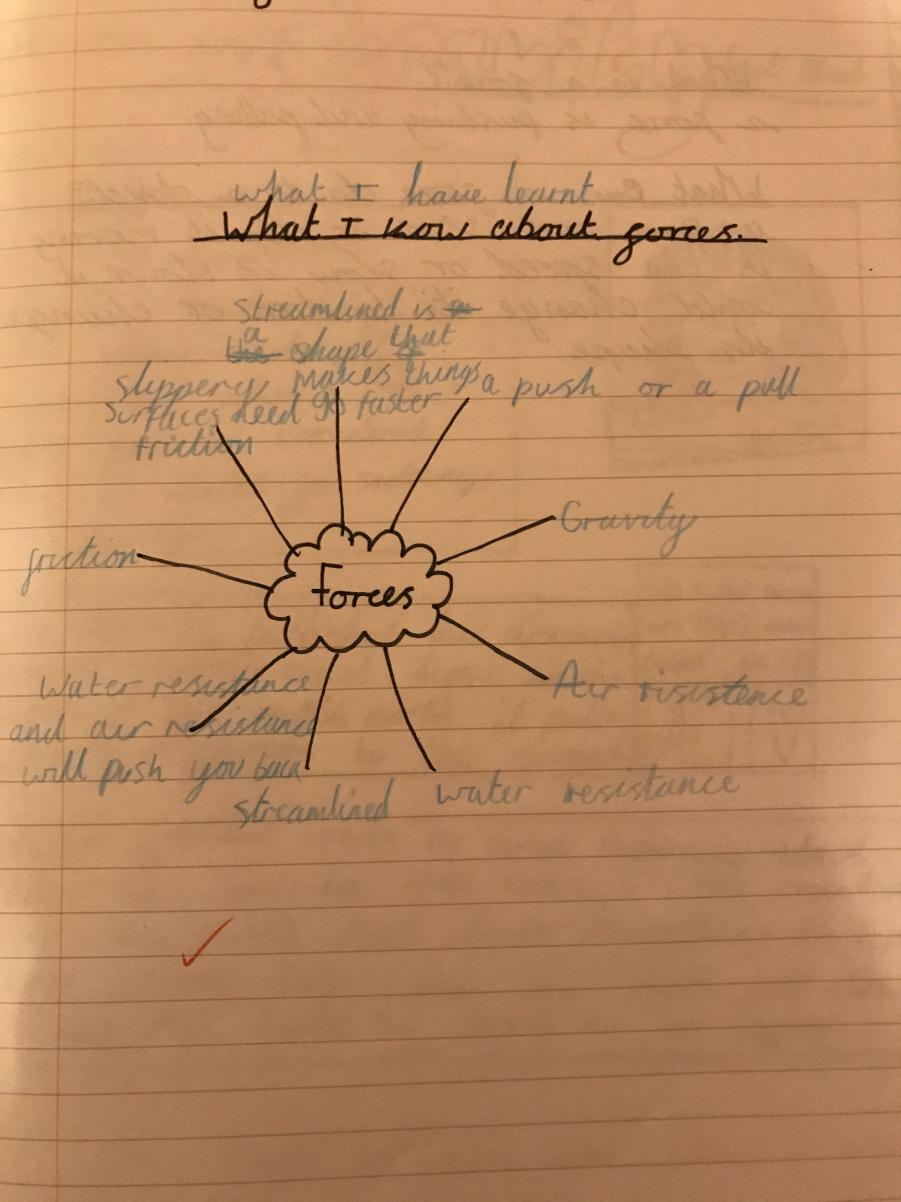 what I have learnt
What I know about forces.
Streamlined is
a
the shape that
makes things
go faster
Slippery
Surfaces need
friction
a push or a pull
Gravity
friction
Forces
Water resistance
and air resistance
will push you back
Air risistence
streamlined
water resistance